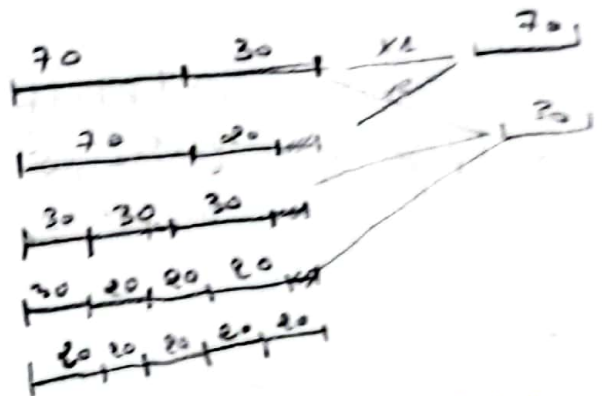 70 30 x1 70
70 20 30
30 30 30
30 20 20 20
20 20 20 20 20